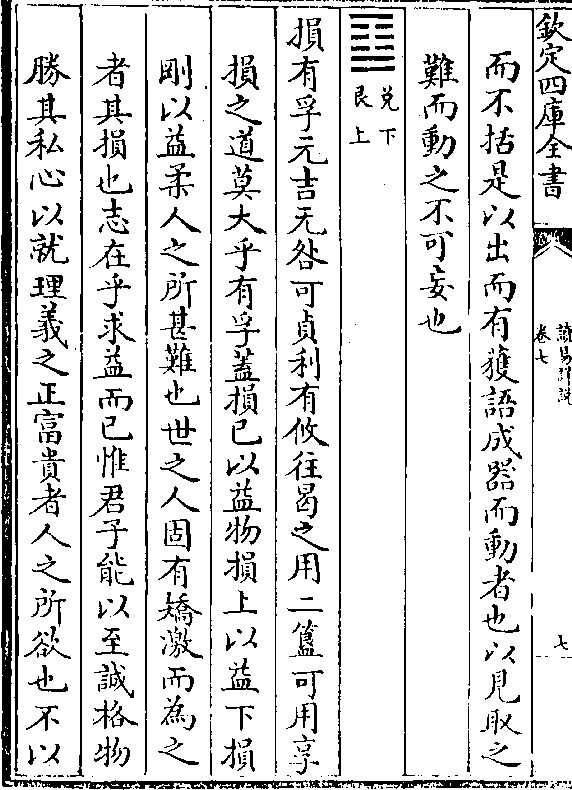 欽定四庫全書
讀易詳説
卷七
七
而不括是以出而有獲語成器而動者也以見取之
難而動之不可妄也
兌下
艮上
損有孚元吉无咎可貞利有攸往曷之用二簋可用享
損之道莫大乎有孚蓋損已以益物損上以益下損
剛以益柔人之所甚難也世之人固有矯激而為之
者其損也志在乎求益而已惟君子能以至誠格物
勝其私心以就理義之正富貴者人之所欲也不以